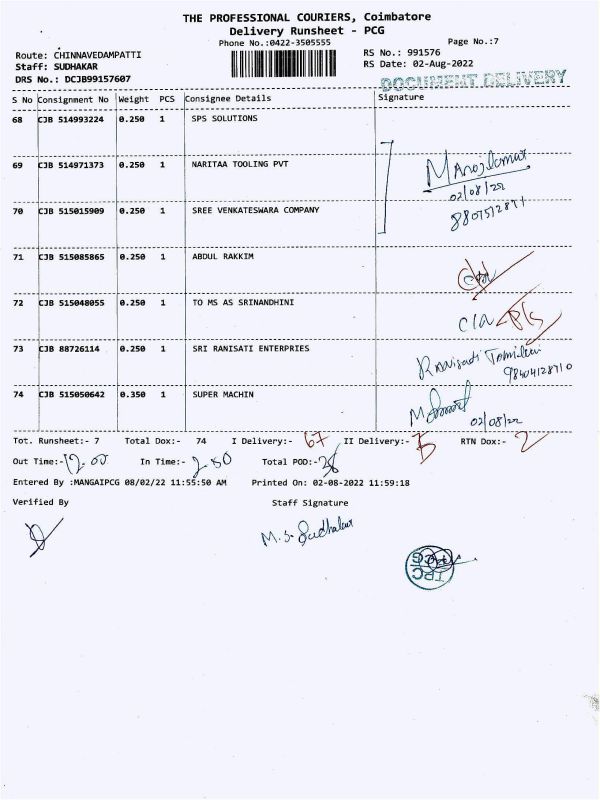 THE PROFESSIONAL COURIERS, Coimbatore
Delivery Runsheet - PCG
Phone No.:0422-3505555
Page No.:7
Route: CHINNAVEDAMPATTI
RS No.: 991576
Staff: SUDHAKAR
RS Date: 02-Aug-2022
DRS No.: DCJB99157607
DOCUMENT DELIVERY
S No Consignment No Weight PCS Consignee Details Signature
68 CJB 514993224 0.250 1 SPS SOLUTIONS
69 CJB 514971373 0.250 1 NARITAA TOOLING PVT
Manojkumar
02/08/22
70 CJB 515015909 0.250 1 SREE VENKATESWARA COMPANY
71 CJB 515085865 0.250 1 ABDUL RAKKIM
72 CJB 515048055 0.250 1 TO MS AS SRINANDHINI
73 CJB 88726114 0.250 1 SRI RANISATI ENTERPRIES
Ranisati
74 CJB 515050642 0.350 1 SUPER MACHIN
02/08/22
Tot. Runsheet:- 7 Total Dox:- 74 I Delivery:- 67 II Delivery:- 5 RTN Dox:- 2
Out Time:- 12.00 In Time:- 2.50 Total POD:- 36
Entered By :MANGAIPCG 08/02/22 11:55:50 AM Printed On: 02-08-2022 11:59:18
Verified By Staff Signature
M.S. Sudhakar
TPC